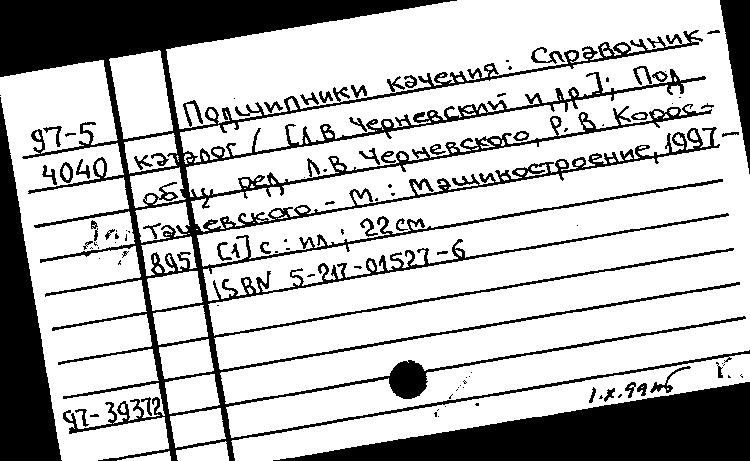 97-5
4040
Подшипники качения: Справочник-
каталог / [Л.В. Черневский и др.]; Под
общ. ред. Л.В. Черневского, Р.В. Корос-
ташевского. - М.: Машиностроение, 1997 -
895, [1] с.: ил.; 22 см.
ISBN 5-217-01527-6
97-39372